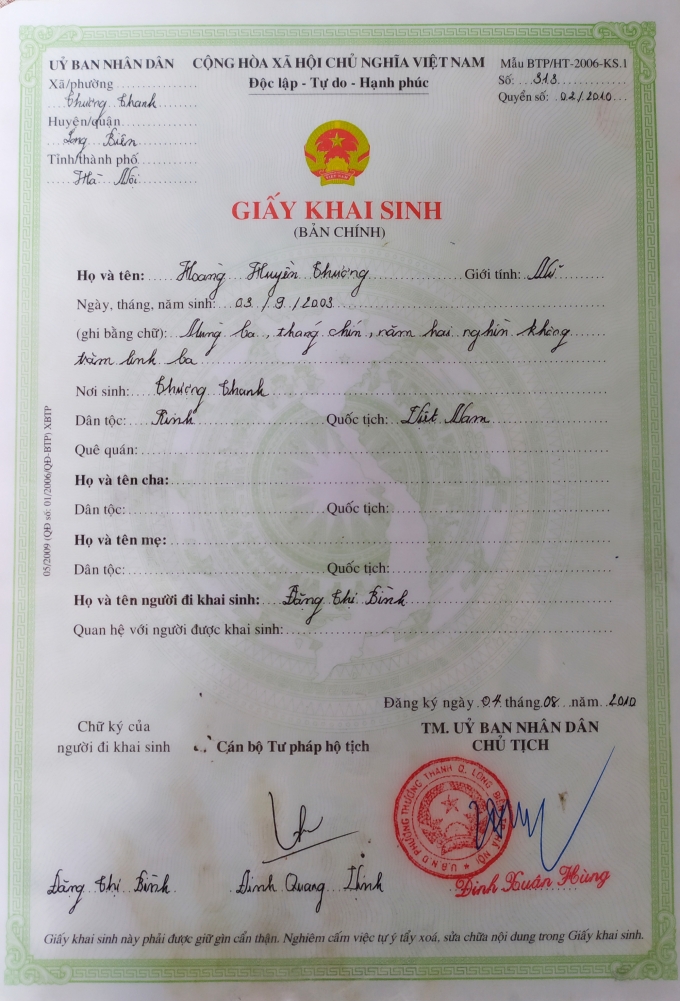 UỶ BAN NHÂN DÂN
CỘNG HÒA XÃ HỘI CHỦ NGHĨA VIỆT NAM
Mẫu BTP/HT-2006-KS.1
Xã/phường
Độc lập - Tự do - Hạnh phúc
Số: 313
Thượng Thanh
Quyển số: 02/2010
Huyện/quận
Long Biên
Tỉnh/thành phố
Hà Nội
GIẤY KHAI SINH
(BẢN CHÍNH)
Họ và tên: Hoàng Huyền Thương Giới tính: Nữ
Ngày, tháng, năm sinh: 03 / 9 / 2003
(ghi bằng chữ): Mùng ba, tháng chín, năm hai nghìn không
trăm linh ba
Nơi sinh: Thượng Thanh
Dân tộc: Kinh Quốc tịch: Việt Nam
Quê quán:
Họ và tên cha:
Dân tộc: Quốc tịch:
Họ và tên mẹ:
Dân tộc: Quốc tịch:
Họ và tên người đi khai sinh: Đặng Thị Bình
Quan hệ với người được khai sinh:
05/2009 (QĐ số: 01/2006/QĐ-BTP) XBTP
Đăng ký ngày 04 tháng 08 năm 2010
Chữ ký của
người đi khai sinh
Cán bộ Tư pháp hộ tịch
TM. UỶ BAN NHÂN DÂN
CHỦ TỊCH
U.B.N.D PHƯỜNG THƯỢNG THANH Q. LONG BIÊN HÀ NỘI
Đặng Thị Bình
Đinh Quang Thịnh
Đinh Xuân Hùng
Giấy khai sinh này phải được giữ gìn cẩn thận. Nghiêm cấm việc tự ý tẩy xoá, sửa chữa nội dung trong Giấy khai sinh.